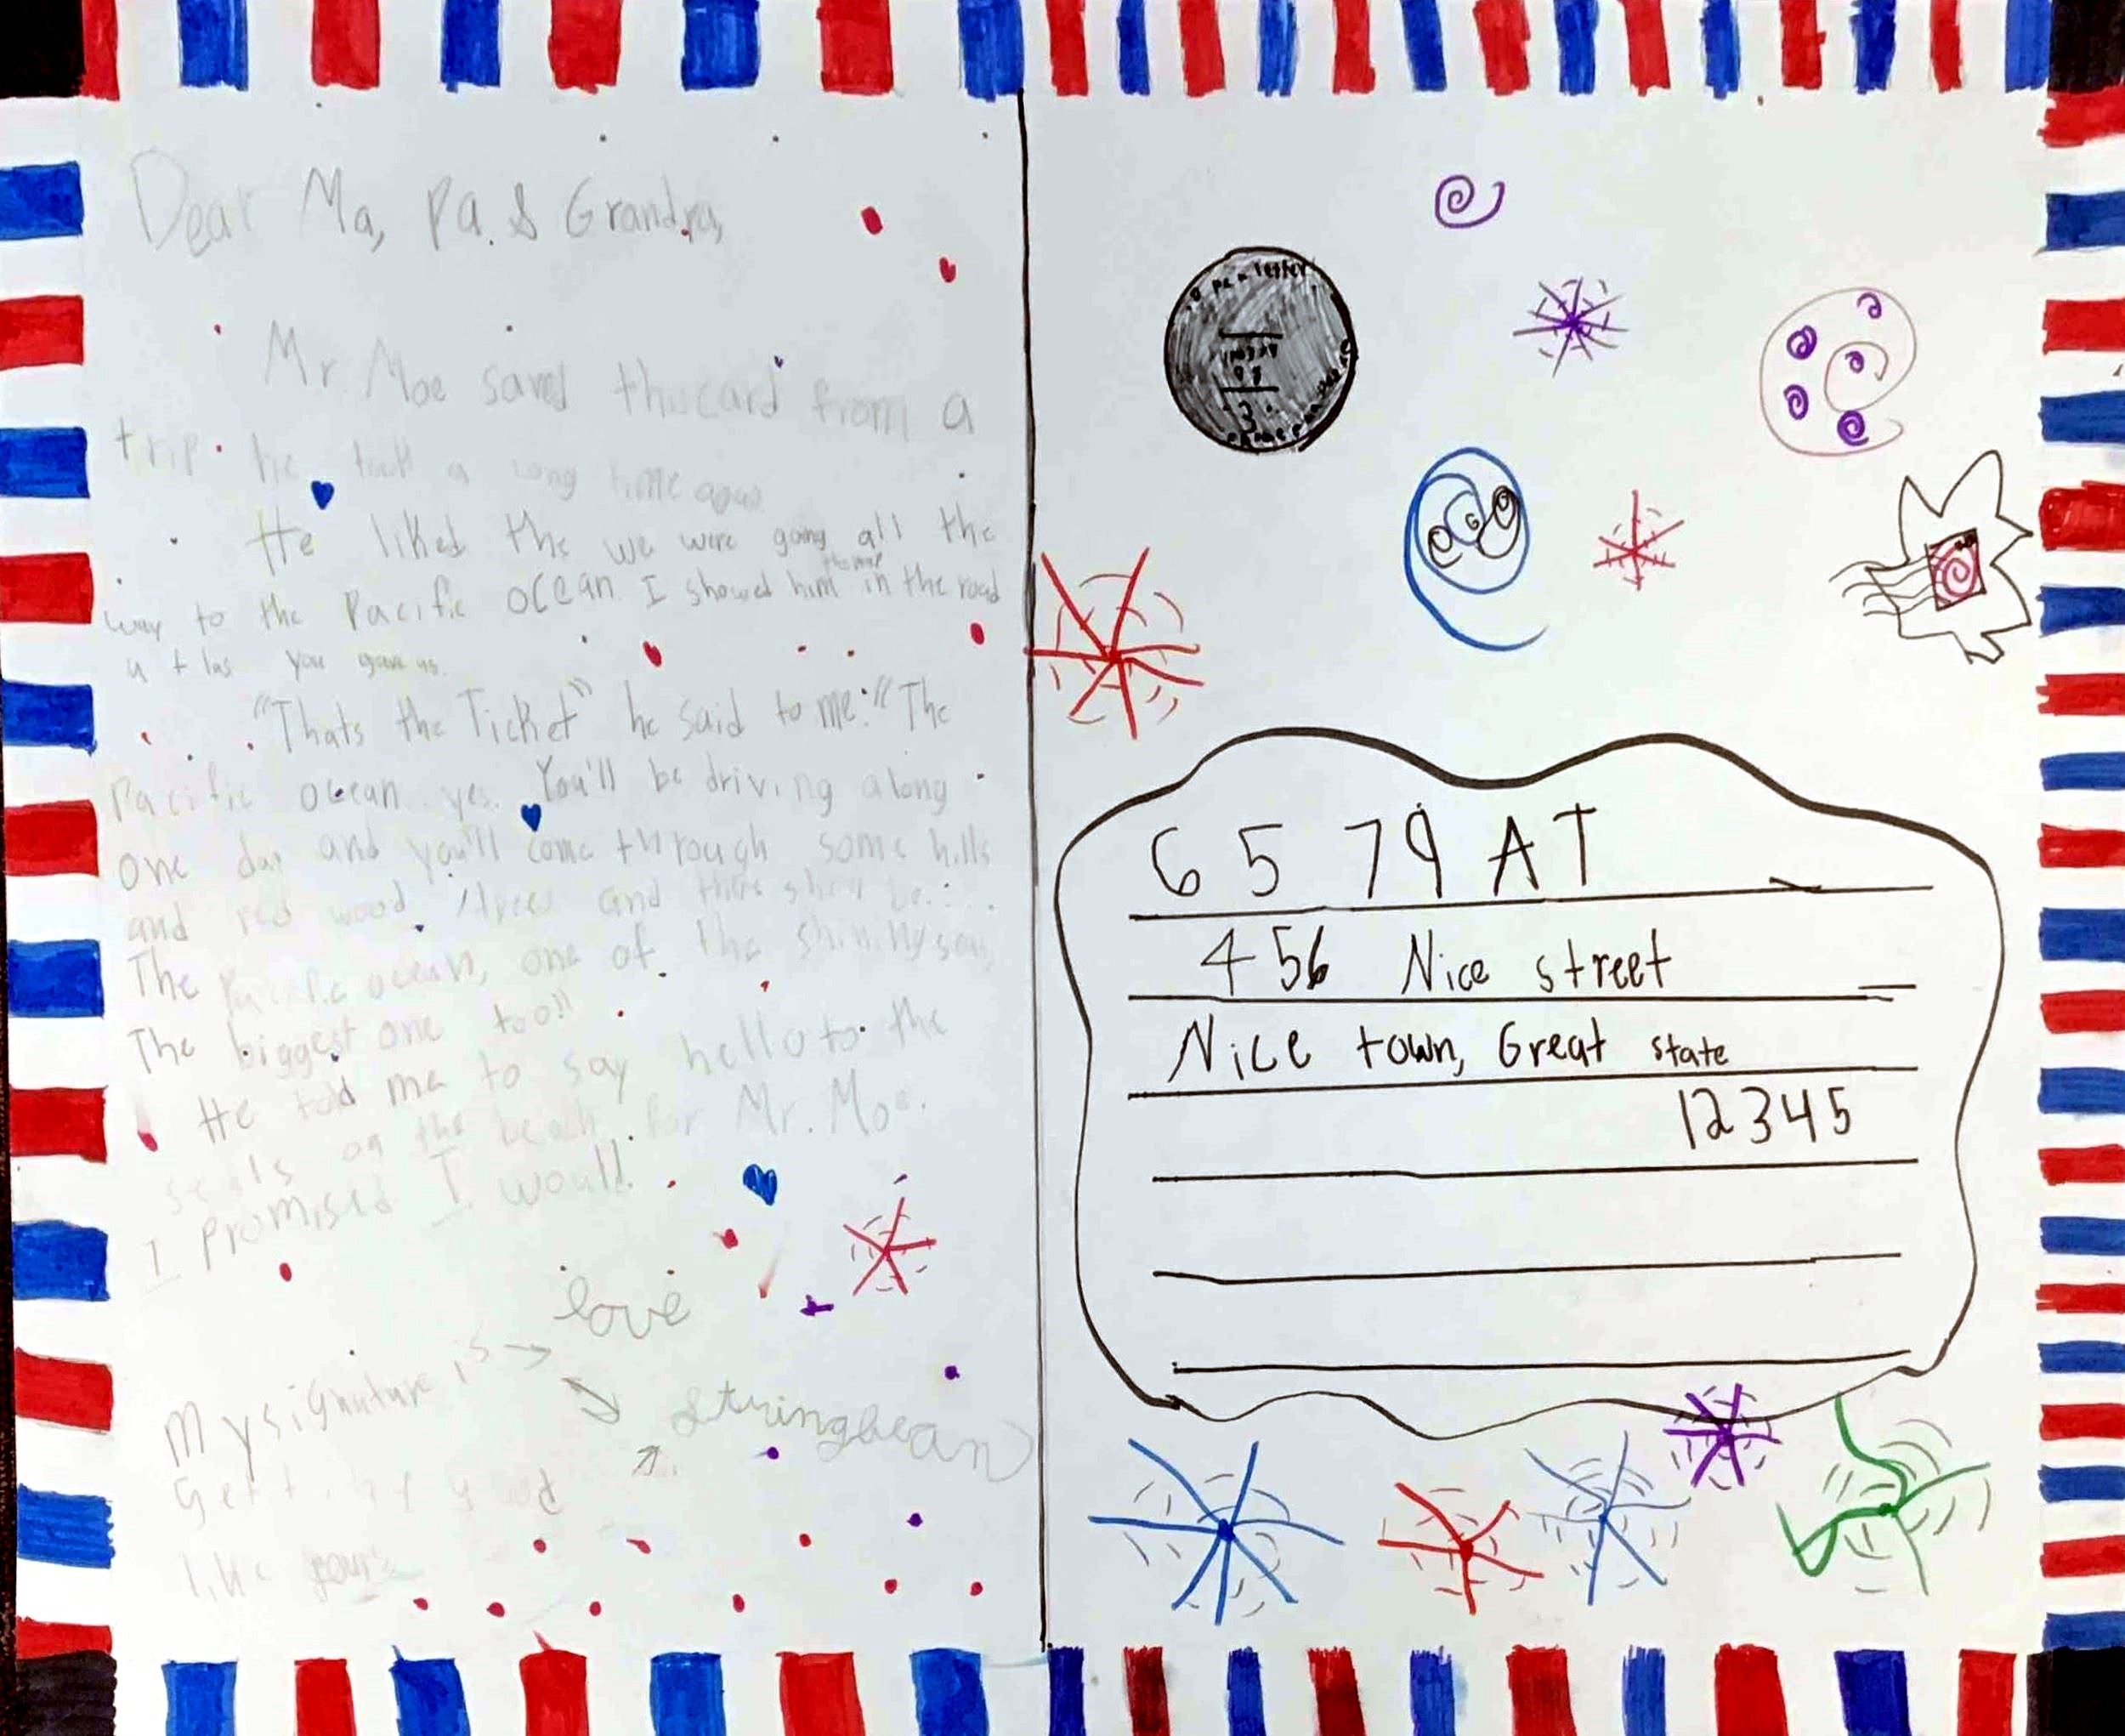 Dear Ma, Pa. & Grandpa,
Mr Moe saved this card from a
trip. he took a long time ago
He liked the we were going all the
way to the Pacific ocean. I showed him the map in the road
atlas you gave us.
"Thats the Ticket" he said to me. "The
Pacific ocean yes. You'll be driving along
one day and you'll come through some hills
and red wood trees and there she'll be...
The Pacific ocean, one of the shininy seas,
The biggest one too!!
He told me to say hello to the
seals on the beach for Mr. Moe.
I promised I would!
love
My signature is →
Stringbean
good
like yours
6 5 79 AT
456 Nice street
Nice town, Great state
12345